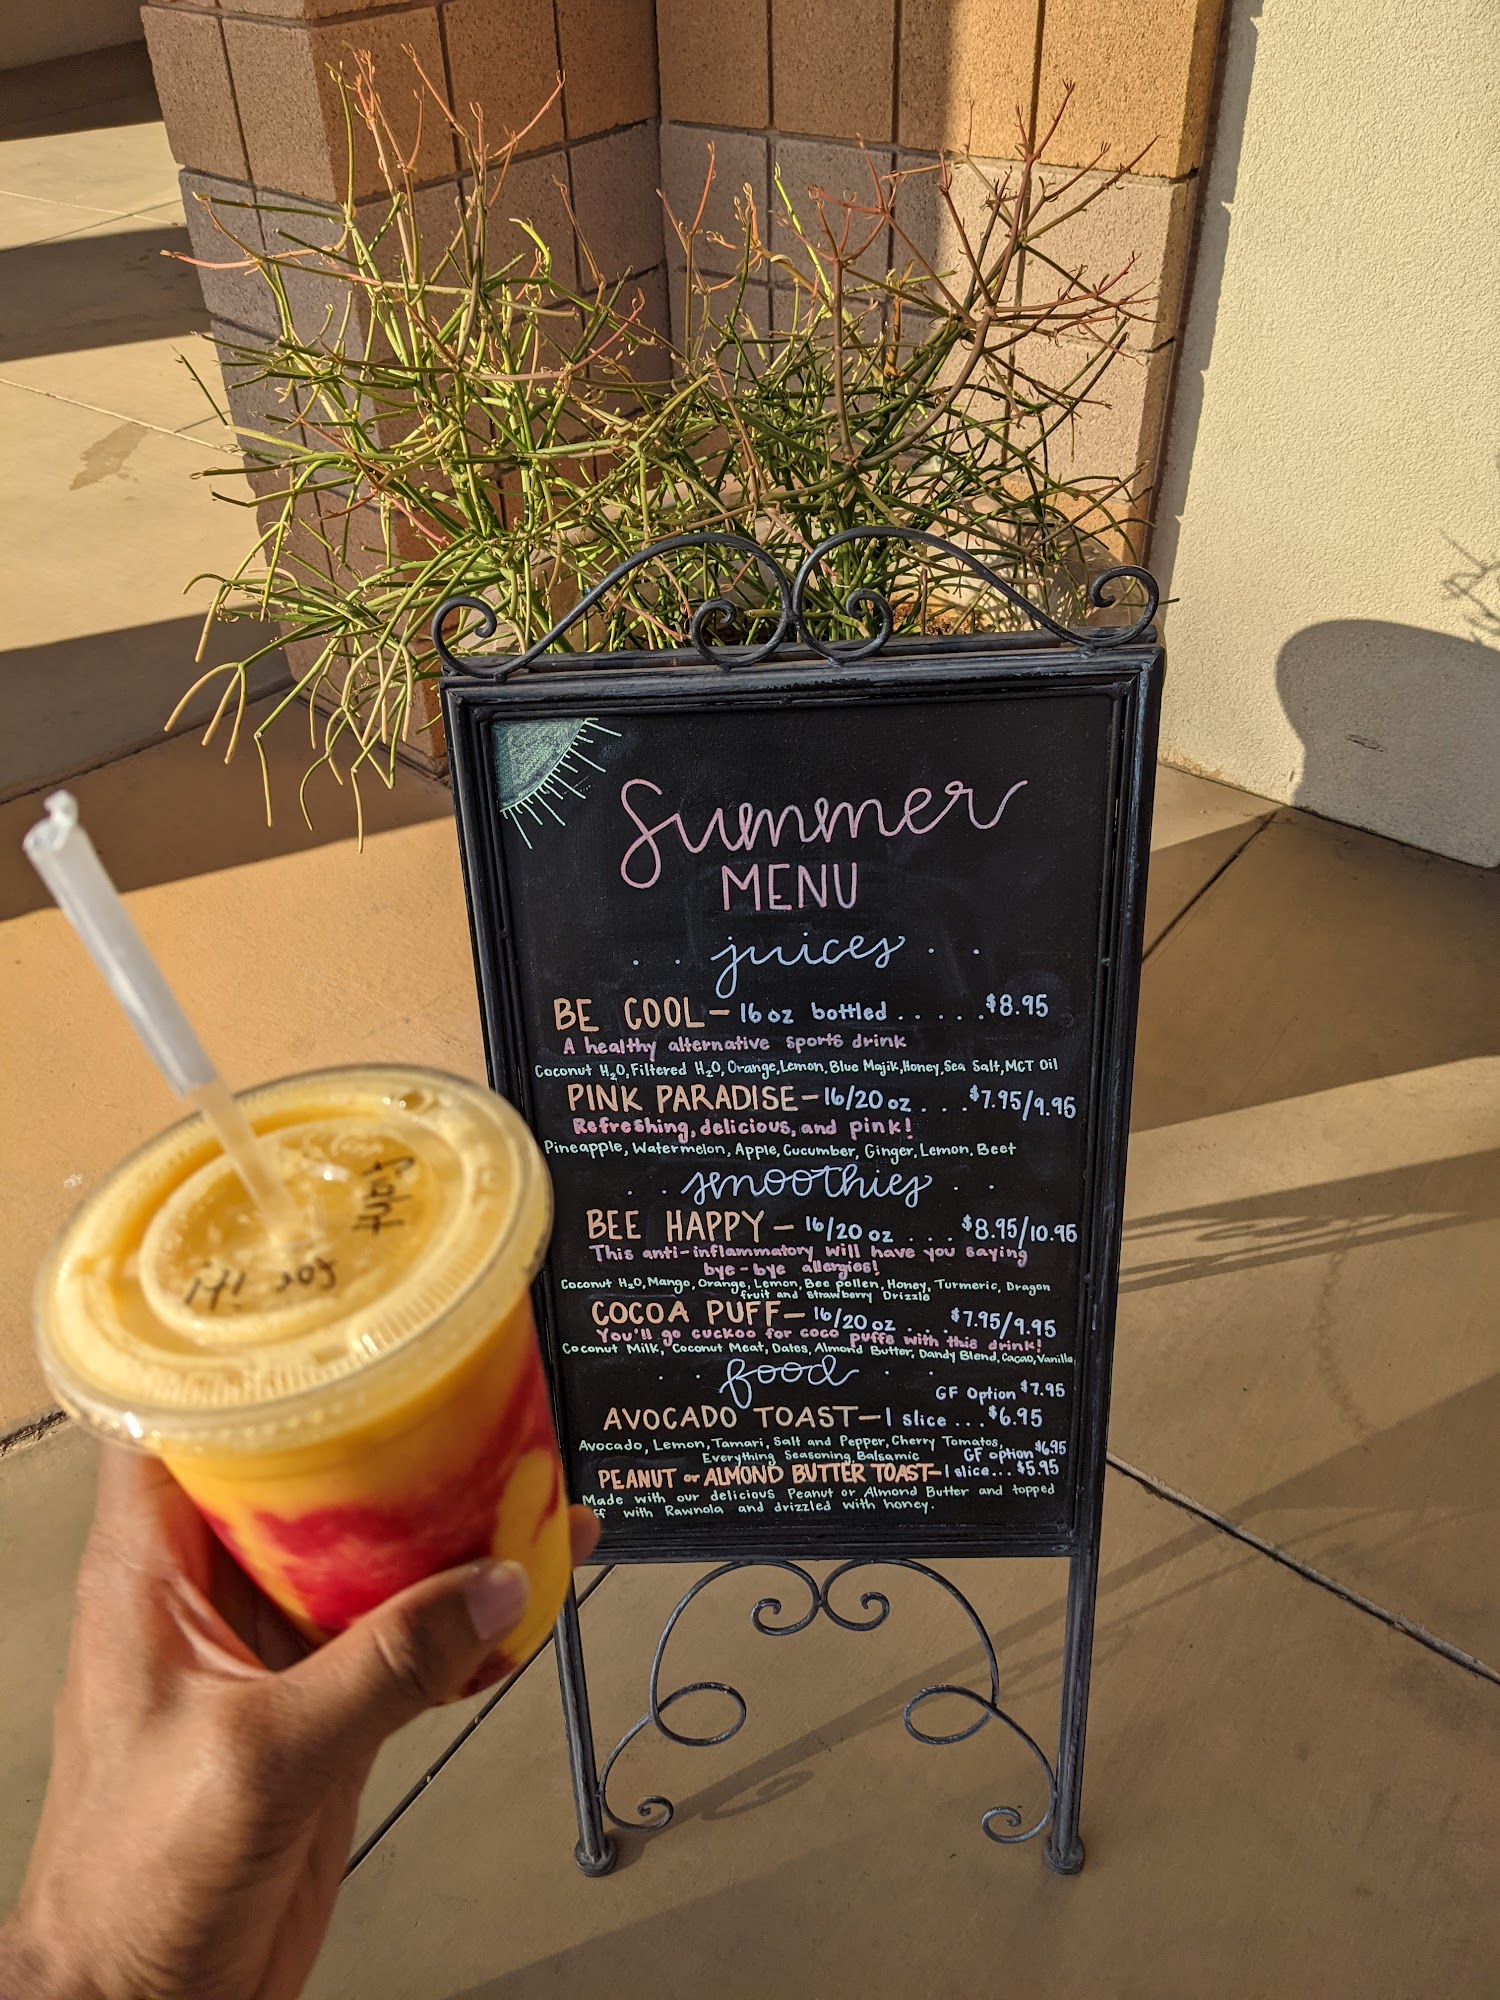 Summer
MENU
. . juices . .
BE COOL - 16 oz bottled . . . . . $8.95
A healthy alternative sports drink
Coconut H₂O, Filtered H₂O, Orange, Lemon, Blue Majik, Honey, Sea Salt, MCT Oil
PINK PARADISE - 16/20 oz . . . $7.95/9.95
Refreshing, delicious, and pink!
Pineapple, Watermelon, Apple, Cucumber, Ginger, Lemon, Beet
. . smoothies . .
BEE HAPPY - 16/20 oz . . . $8.95/10.95
This anti-inflammatory will have you saying
bye-bye allergies!
Coconut H₂O, Mango, Orange, Lemon, Bee pollen, Honey, Turmeric, Dragon
fruit and strawberry Drizzle
COCOA PUFF - 16/20 oz . . . $7.95/9.95
You'll go cuckoo for coco puffs with this drink!
Coconut Milk, Coconut Meat, Dates, Almond Butter, Dandy Blend, Cacao, Vanilla
. . food . .
GF Option $7.95
AVOCADO TOAST - 1 slice ... $6.95
Avocado, Lemon, Tamari, Salt and Pepper, Cherry Tomatos,
Everything Seasoning, Balsamic
GF option $6.95
PEANUT or ALMOND BUTTER TOAST - 1 slice... $5.95
Made with our delicious Peanut or Almond Butter and topped
ff with Rawnola and drizzled with honey.
for it!